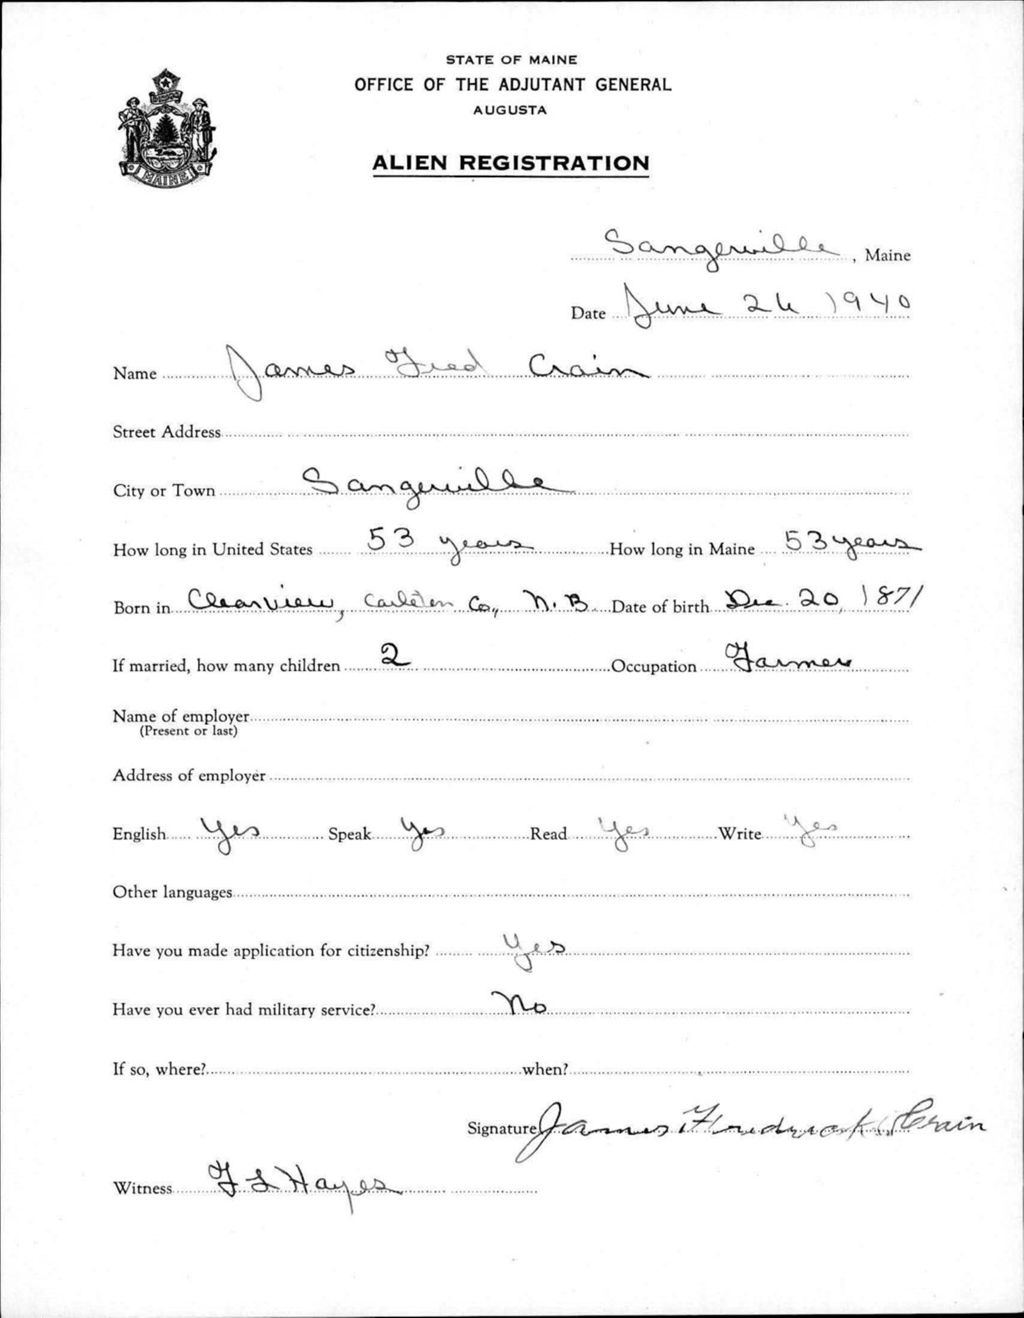 STATE OF MAINE
OFFICE OF THE ADJUTANT GENERAL
AUGUSTA
ALIEN REGISTRATION
MAINE
Sangerville, Maine
Date June 26 1940
Name James Fred Crain
Street Address
City or Town Sangerville
How long in United States 53 years How long in Maine 53 years
Born in Clearview, Carleton Co., N.B. Date of birth Dec. 20, 1871
If married, how many children 2 Occupation Farmer
Name of employer
(Present or last)
Address of employer
English Yes Speak Yes Read Yes Write Yes
Other languages
Have you made application for citizenship? Yes
Have you ever had military service? No
If so, where? when?
Signature James Fredrick Crain
Witness F L Hayes